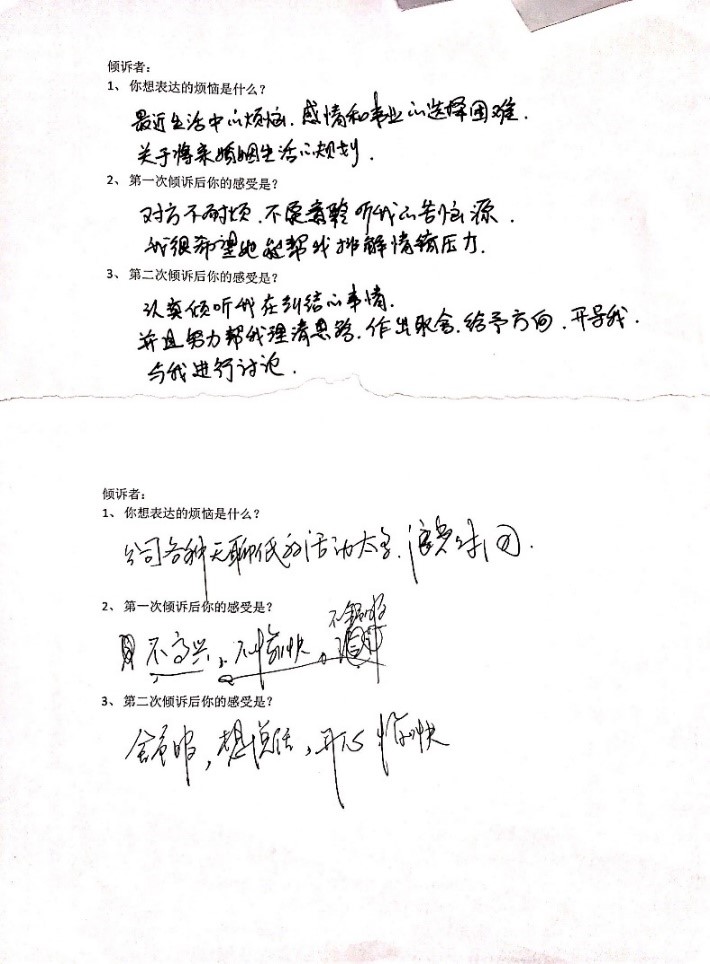 倾诉者：
1、 你想表达的烦恼是什么？
最近生活中的烦恼．感情和事业的选择困难．
关于将来婚姻生活的规划．
2、 第一次倾诉后你的感受是？
对方不耐烦．不愿意聆听我的苦恼源．
我很希望她能帮我排解情绪压力．
3、 第二次倾诉后你的感受是？
认真倾听我在纠结的事情．
并且努力帮我理清思路．作出取舍．给予方向．开导我．
与我进行讨论．
倾诉者：
1、 你想表达的烦恼是什么？
公司各种无聊低效活动太多，浪费时间．
2、 第一次倾诉后你的感受是？
不舒服
不高兴，不愉快，
3、 第二次倾诉后你的感受是？
舒服，想说话，开心 愉快